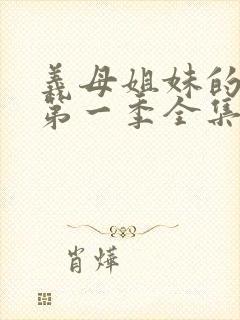 義母姐妹的
第一季全集
肖燁